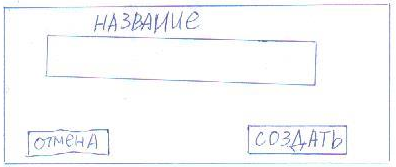 НАЗВАНИЕ
ОТМЕНА
СОЗДАТЬ